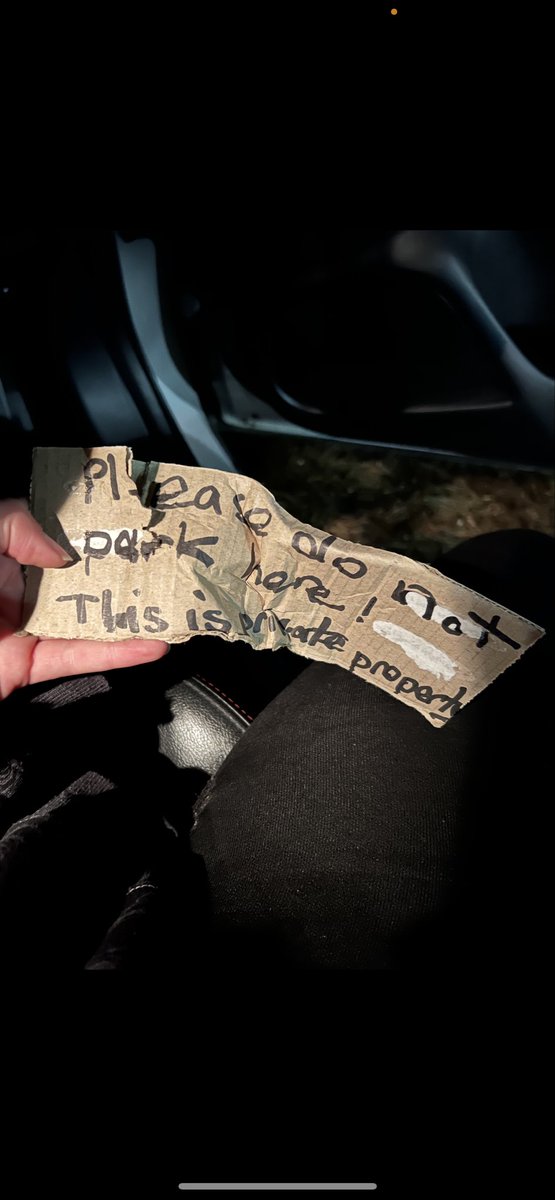 Please do not
park here!
This is private propety